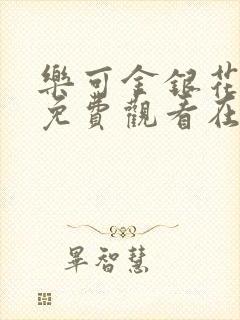 樂可金銀花
免費觀看在
畢智慧